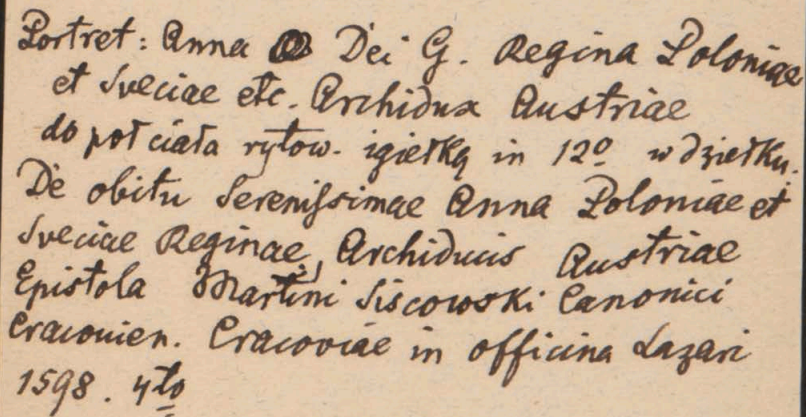 Portret: Anna Dei G. Regina Poloniae
et Sveciae etc. Archidux Austriae
do poł ciała rytow. igiełką in 12º w dziełku.
De obitu Serenissimae Anna Poloniae et
Sveciae Reginae, Archiducis Austriae
Epistola Martini Siscowski Canonici
Cracovien. Cracoviae in officina Lazari
1598. 4to